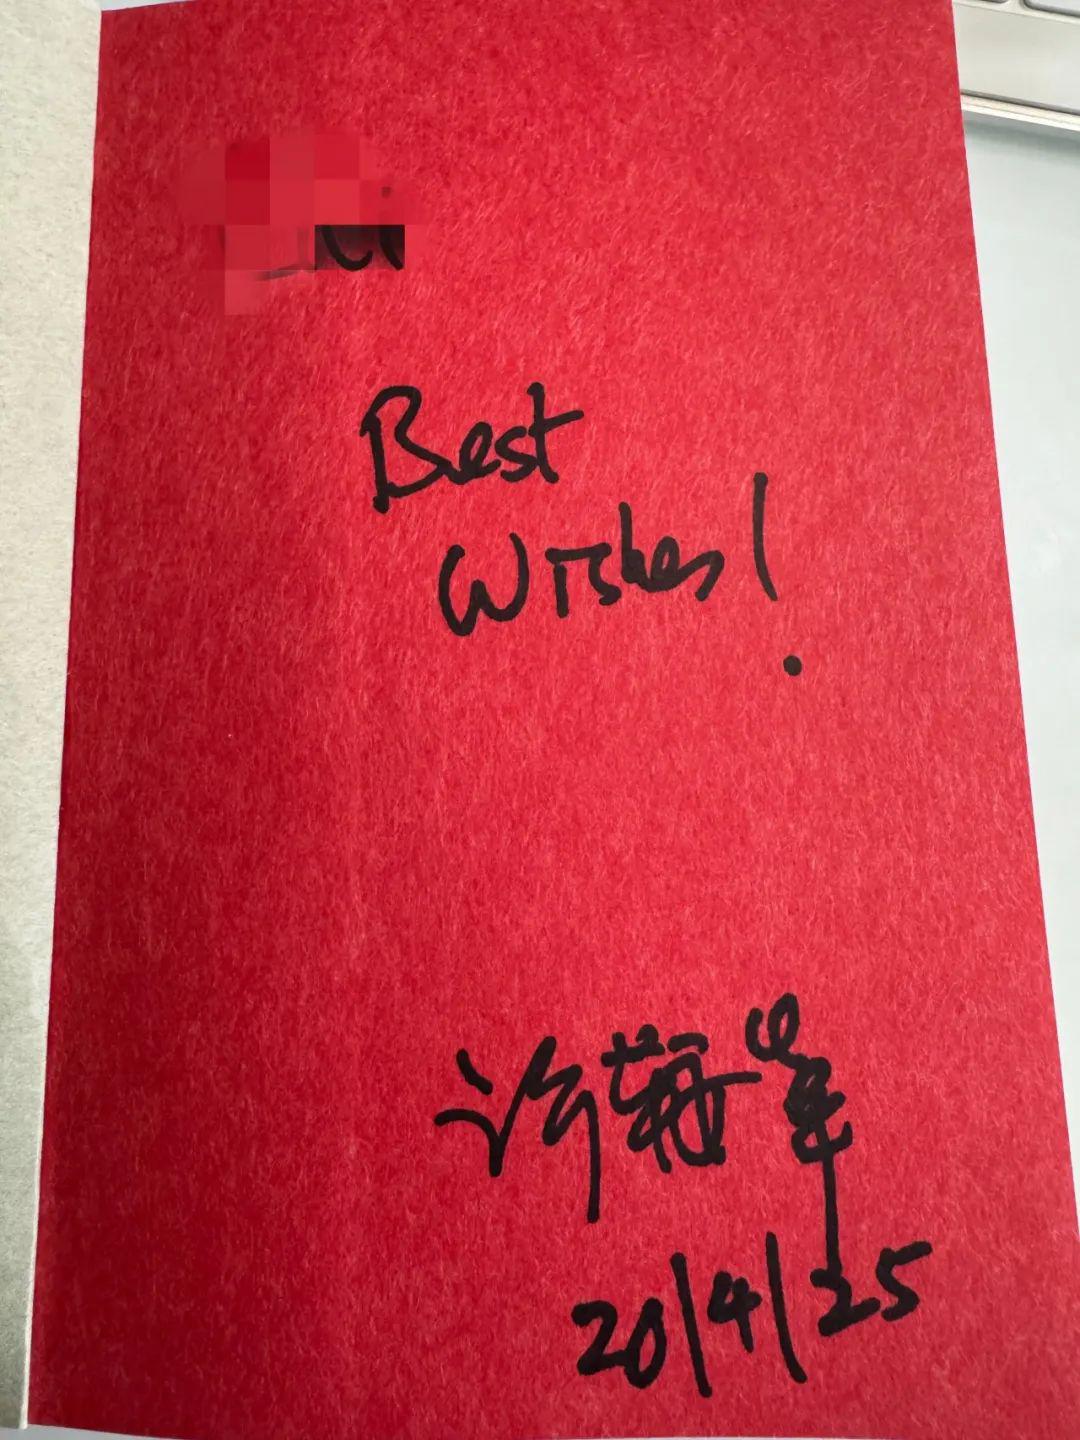 Best
Wishes!
20/4/25